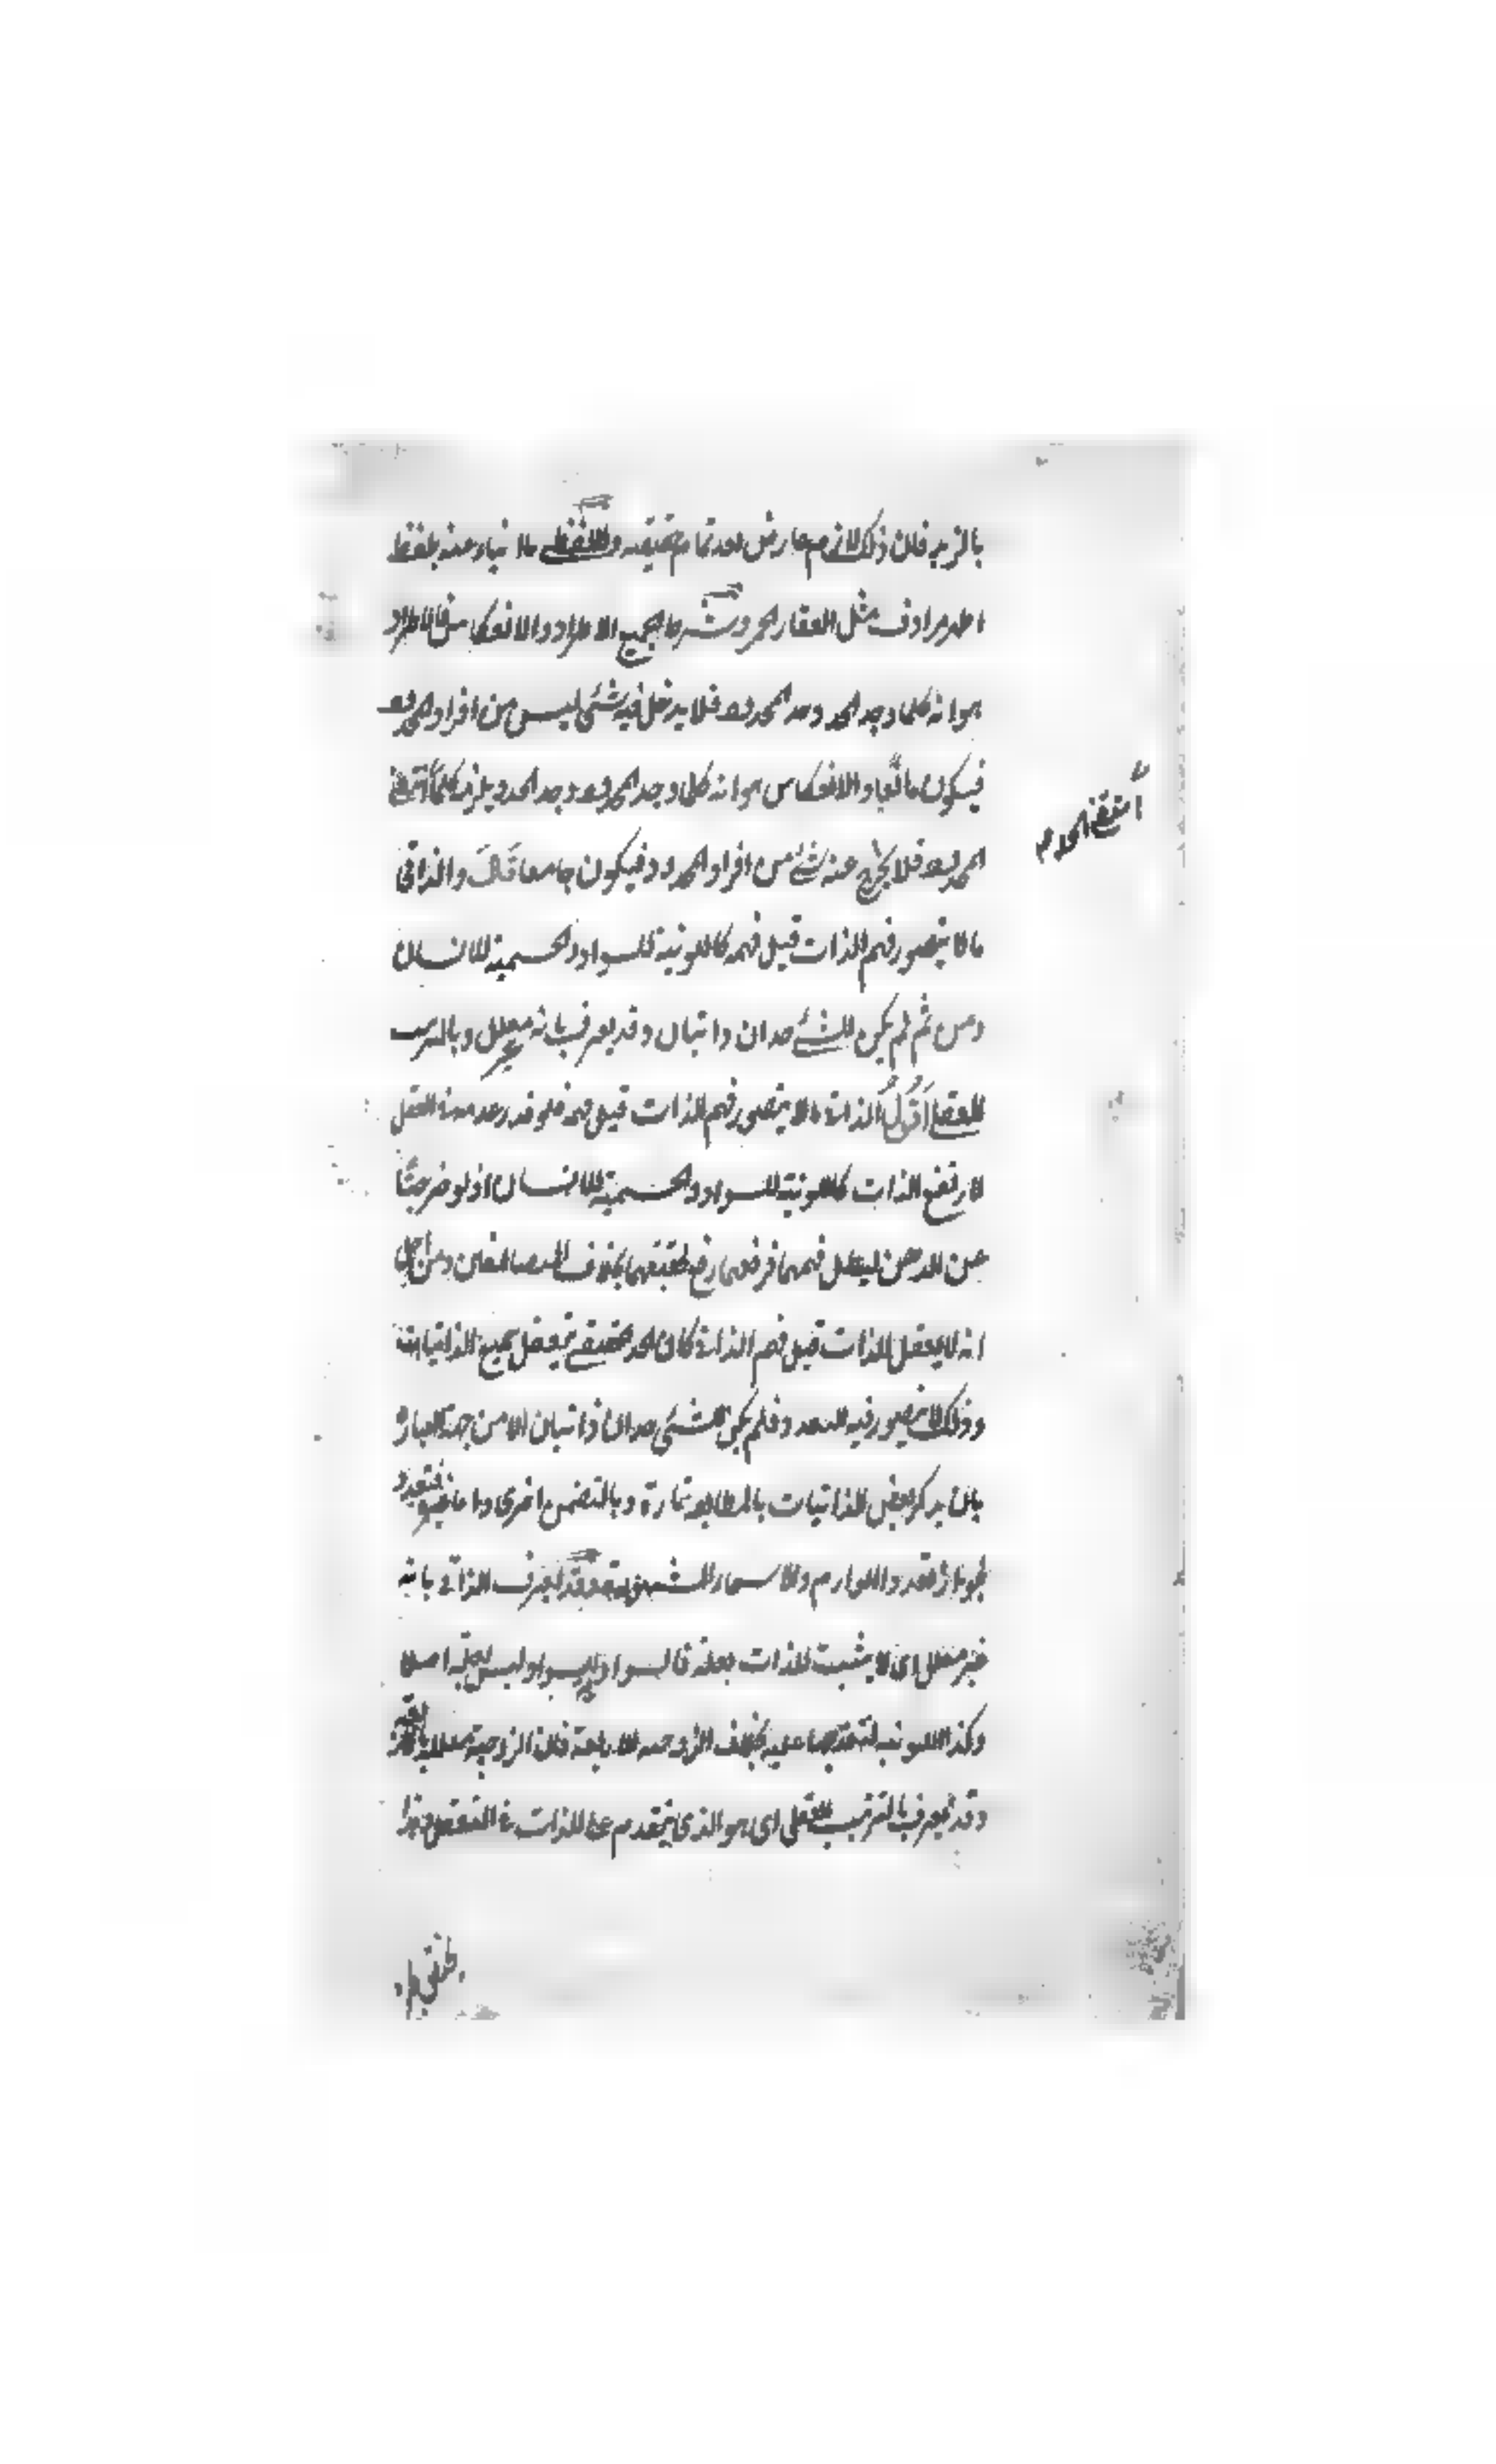 بالزبد فان ذلك لازم عارض بعد تمام حقيقته واللفظي ما انباء عنه بلفظ
اظهر مرادف مثل العقار الخمر وشرط الجميع الاطراد والانعكاس فالاطراد
هو انه كلما وجد الحد وجد المحدود فلا يدخل فيه شئ ليس من افراد المحدود
فيكون مانعا والانعكاس هو انه كلما وجد المحدود وجد الحد ويلزمه كلما انتفى
انتفى الحد
المحدود فلا يخرج عنه شئ من افراد المحدود فيكون جامعا قال والذاتي
ما لا يتصور فهم الذات قبل فهمه كاللونية للسواد والجسمية للانسان
ومن ثم لم يكن للشئ حدان ذاتيان وقد يعرف بانه غير معلل وبالترتيب
العقلي اقول الذاتي ما لا يتصور فهم الذات قبل فهمه فلو قدر عدمه في العقل
لارتفع الذات كاللونية للسواد والجسمية للانسان اذ لو خرجتا
عن الذهن لبطل فهمهما فرفعهما رفع لحقيقتهما بخلاف ومن اجل
انه لا يعقل الذات قبل فهم الذاتي كان الحد الحقيقي بتعقل جميع الذاتيات
وذلك لا يتصور فيه التعدد فلم يكن للشئ حدان ذاتيان الا من جهة العبارة
بان يذكر بعض الذاتيات بالمطابقة تارة وبالتضمن اخرى واما غيره فيتعدد
لجواز تعدد اللوازم والاسماء المشهورة وقد يعرف الذاتي بانه
غير معلل اى لا يثبت للذات بعلة فالسواد للسواد ليس بعلة اصلا
وكذا اللونية لتقدمها عليه بخلاف الزوجية للاربعة فان الزوجية معللة بالاربعة
وقد يعرف بالترتيب العقلي اى هو الذي يتقدم على الذات في التعقل وهذا